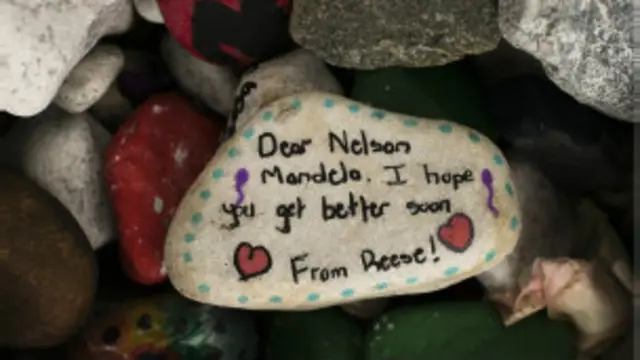 Dear Nelson
Mandela. I hope
you get better soon
From Reese!